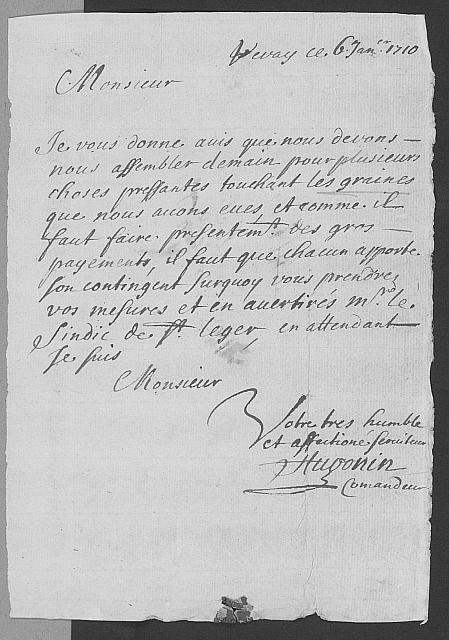 Vevay ce 6. Janer. 1710
Monsieur
Je vous donne avis que nous devons
nous assembler demain pour plusieurs
choses pressantes touchant les graines
que nous avons eues, et comme il
faut faire presentemt. des gros
payements, il faut que chacun apporte
son contingent surquoy vous prendres
vos mesures et en avertires mr. le
Sindic de St. leger, en attendant
Je suis
Monsieur
Votre tres humble
et affectioné serviteur
Hugonin
Comandeur